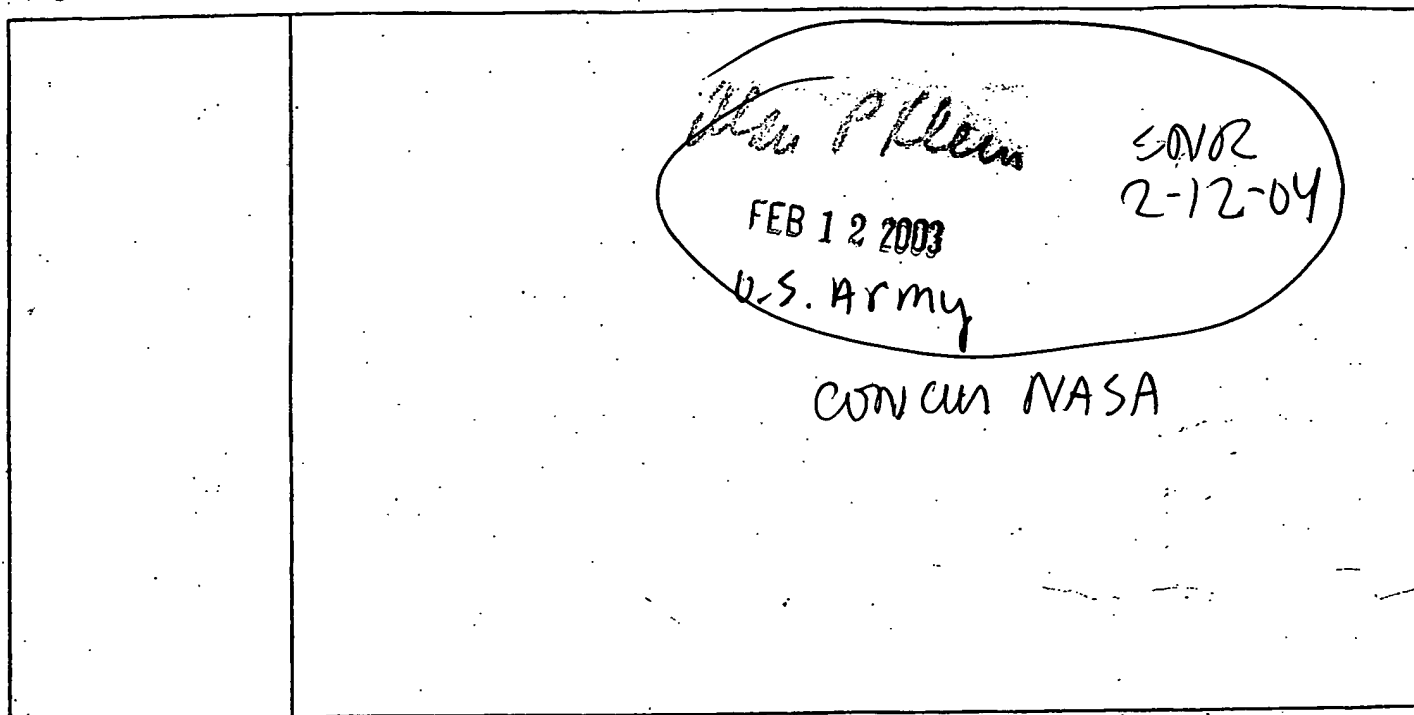 P Klein
2-12-04
FEB 12 2003
U.S. Army
concur NASA